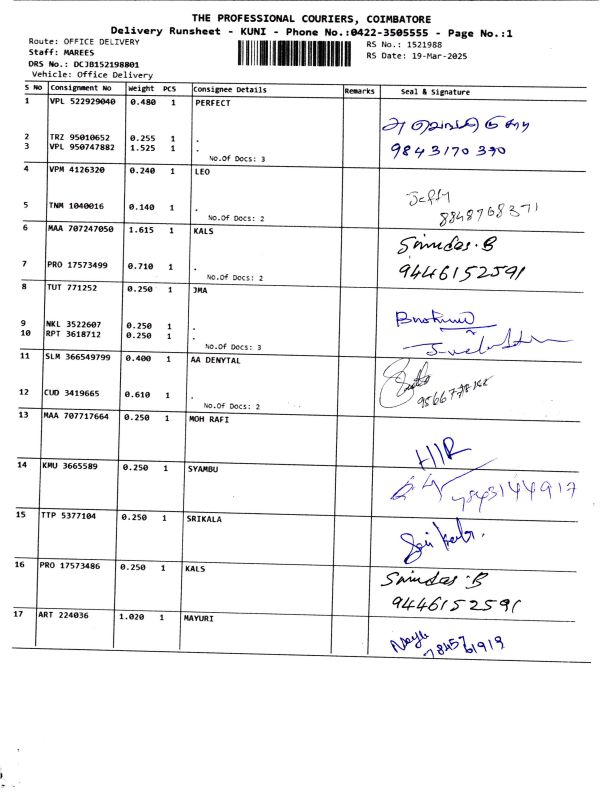 THE PROFESSIONAL COURIERS, COIMBATORE
Delivery Runsheet - KUNI - Phone No.:0422-3505555 - Page No.:1
Route: OFFICE DELIVERY
RS No.: 1521988
Staff: MAREES
RS Date: 19-Mar-2025
DRS No.: DCJB152198801
Vehicle: Office Delivery
S No Consignment No Weight PCS Consignee Details Remarks Seal & Signature
1 VPL 522929040 0.480 1 PERFECT
2 TRZ 95010652 0.255 1 .
3 VPL 950747882 1.525 1 . 9843170390
No.Of Docs: 3
4 VPM 4126320 0.240 1 LEO
5 TNM 1040016 0.140 1 . 8848768371
No.Of Docs: 2
6 MAA 707247050 1.615 1 KALS Saindas.B
7 PRO 17573499 0.710 1 . 9446152591
No.Of Docs: 2
8 TUT 771252 0.250 1 JMA
9 NKL 3522607 0.250 1 .
10 RPT 3618712 0.250 1 .
No.Of Docs: 3
11 SLM 366549799 0.400 1 AA DENYTAL
12 CUD 3419665 0.610 1 .
No.Of Docs: 2
13 MAA 707717664 0.250 1 MOH RAFI
14 KMU 3665589 0.250 1 SYAMBU
15 TTP 5377104 0.250 1 SRIKALA
16 PRO 17573486 0.250 1 KALS Saindas.B
9446152591
17 ART 224036 1.020 1 MAYURI